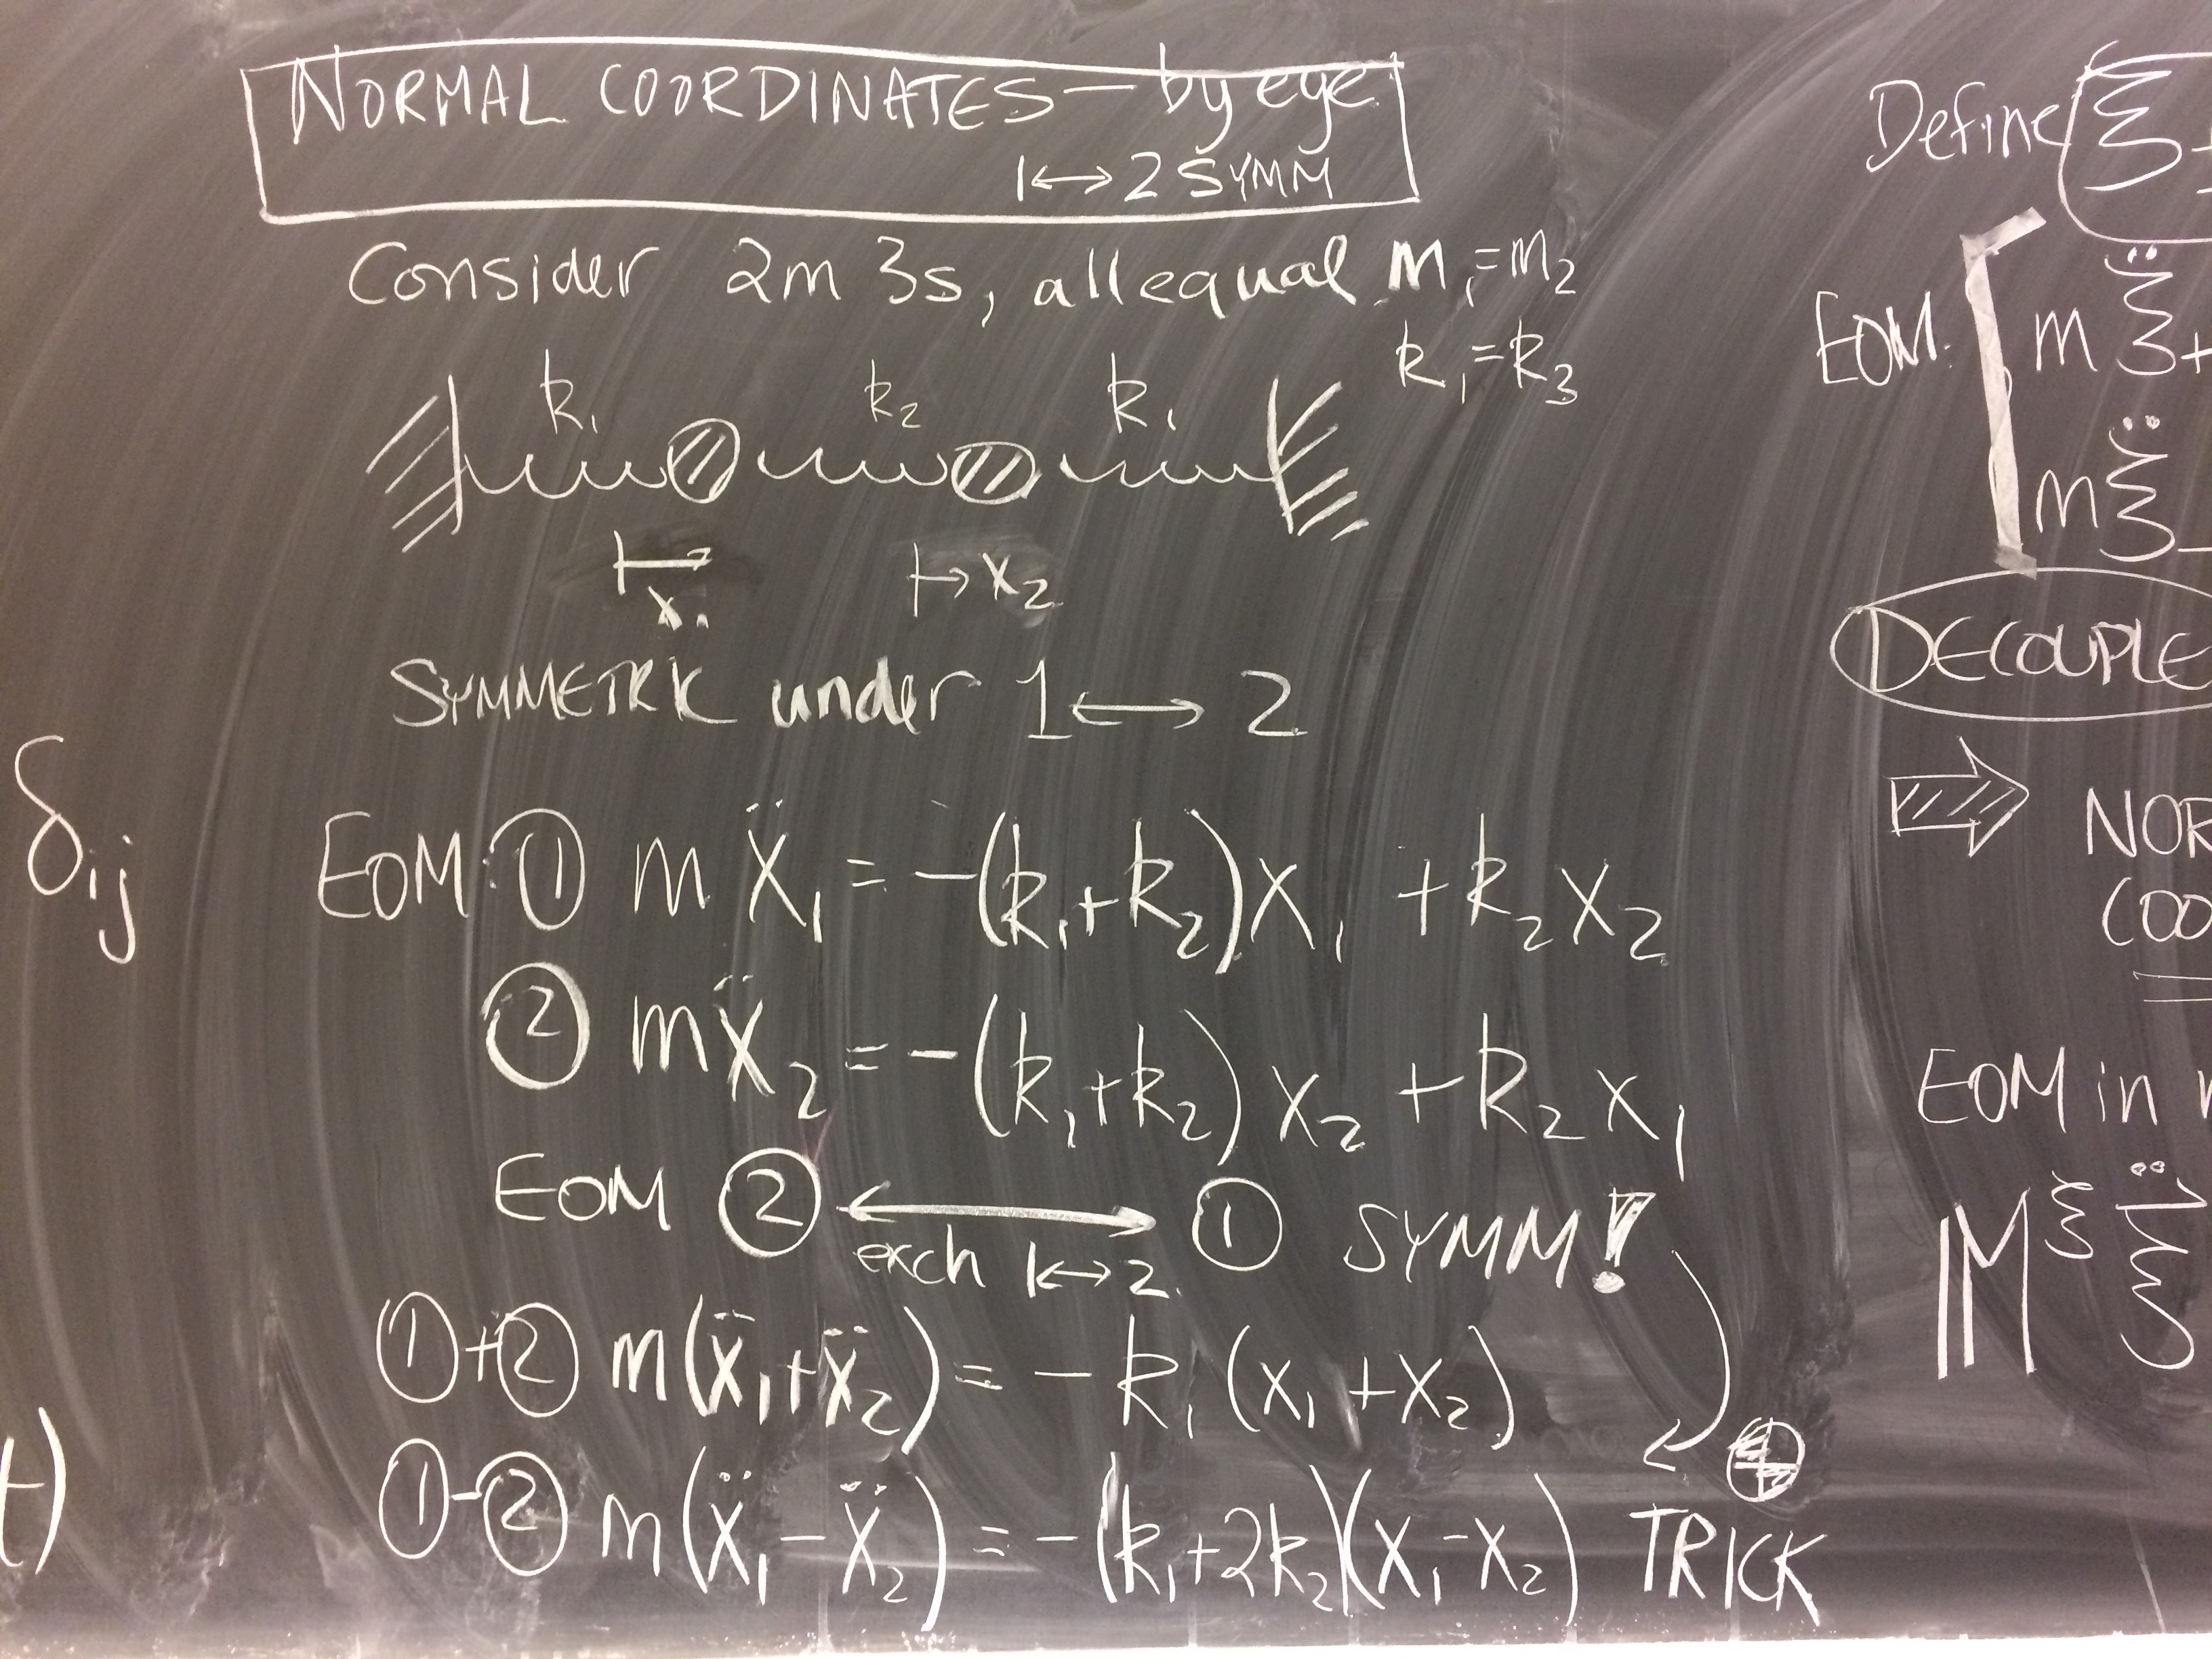 NORMAL COORDINATES — by eye
1↔2 SYMM
Consider 2m 3s, all equal m₁=m₂
k₁=k₃
k₁ k₂ k₁
x₁ ↦ x₂
SYMMETRIC under 1↔2
EOM: ① mẍ₁ = -(k₁+k₂)x₁ + k₂x₂
② mẍ₂ = -(k₁+k₂)x₂ + k₂x₁
EOM ② ↔ ① SYMM!
exch 1↔2
①+② m(ẍ₁+ẍ₂) = -k₁(x₁+x₂)
①-② m(ẍ₁-ẍ₂) = -(k₁+2k₂)(x₁-x₂) TRICK
δᵢⱼ
t)
Define ξ
EOM:
m ξ̈₊
m ξ̈₋
DECOUPLE
⇒ NOR
COO
EOM in
𝕄^ξ ξ̈